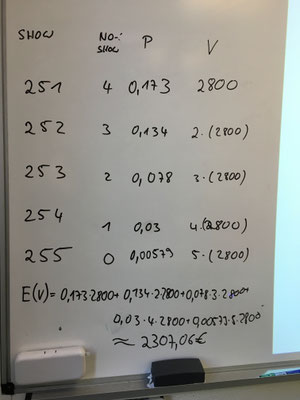 SHOW NO-SHOW P V
251 4 0,173 2800
252 3 0,134 2·(2800)
253 2 0,078 3·(2800)
254 1 0,03 4·(2800)
255 0 0,00579 5·(2800)
E(V)=0,173·2800+0,134·2·2800+0,078·3·2800+
0,03·4·2800+0,00579·5·2800
≈ 2307,06€